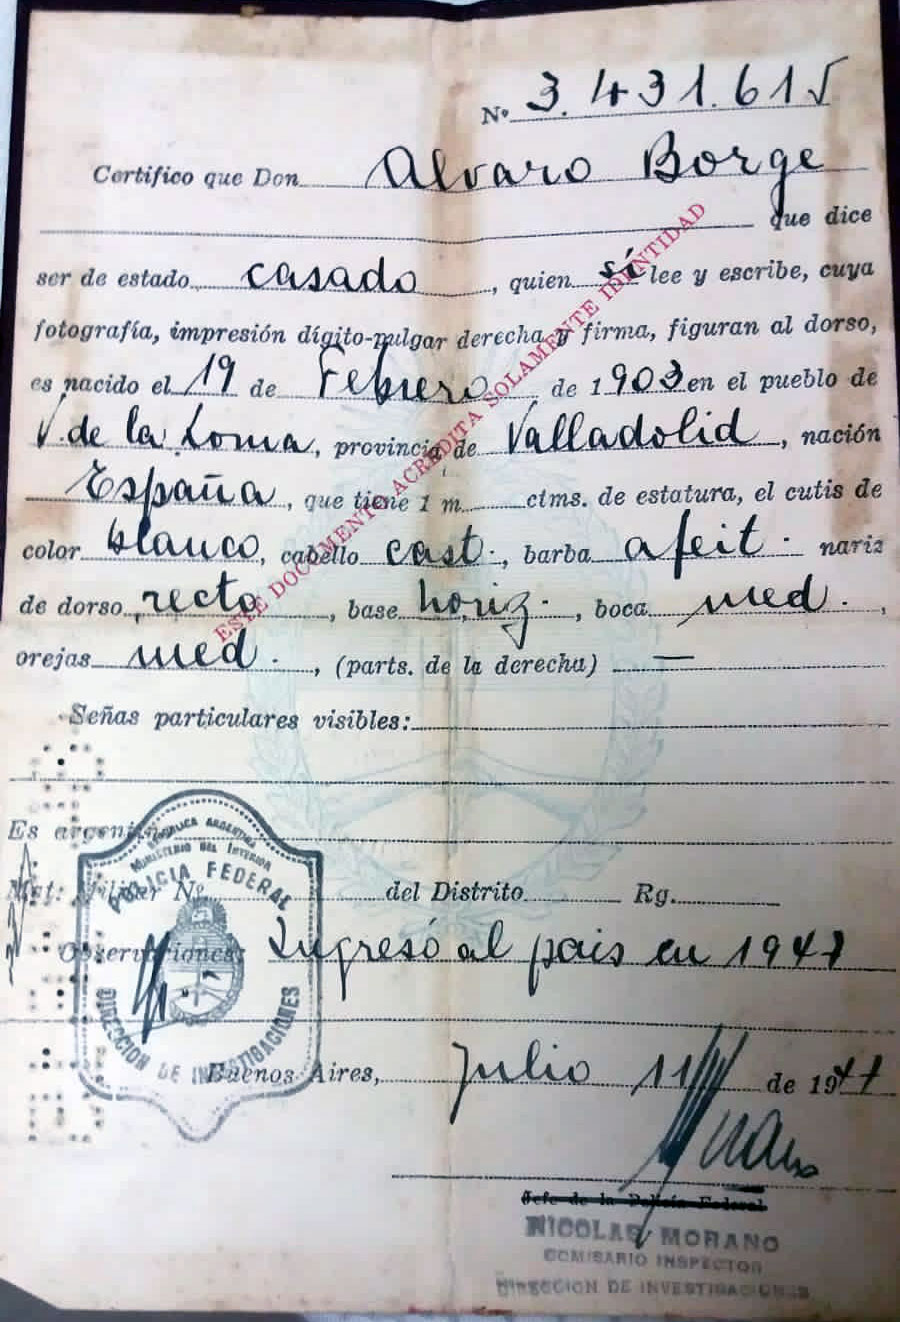 Nº 3.431.615
Certifico que Don Alvaro Borge
que dice
ser de estado casado, quien sí lee y escribe, cuya
fotografía, impresión dígito-pulgar derecha y firma, figuran al dorso,
es nacido el 19 de Febrero de 1903 en el pueblo de
V. de la Loma, provincia de Valladolid, nación
España, que tiene 1 m. ctms. de estatura, el cutis de
color blanco, cabello cast., barba afeit. nariz
de dorso recto, base horiz., boca med.,
orejas med., (parts. de la derecha) —
Señas particulares visibles:
Es
Mat. Militar Nº del Distrito Rg.
Observaciones: Ingresó al pais en 1947
Buenos Aires, Julio 11 de 1947
Jefe de la Policía Federal
NICOLAS MORANO
COMISARIO INSPECTOR
DIRECCION DE INVESTIGACIONES
ESTE DOCUMENTO ACREDITA SOLAMENTE IDENTIDAD
REPUBLICA ARGENTINA
MINISTERIO DEL INTERIOR
POLICIA FEDERAL
DIRECCION DE INVESTIGACIONES